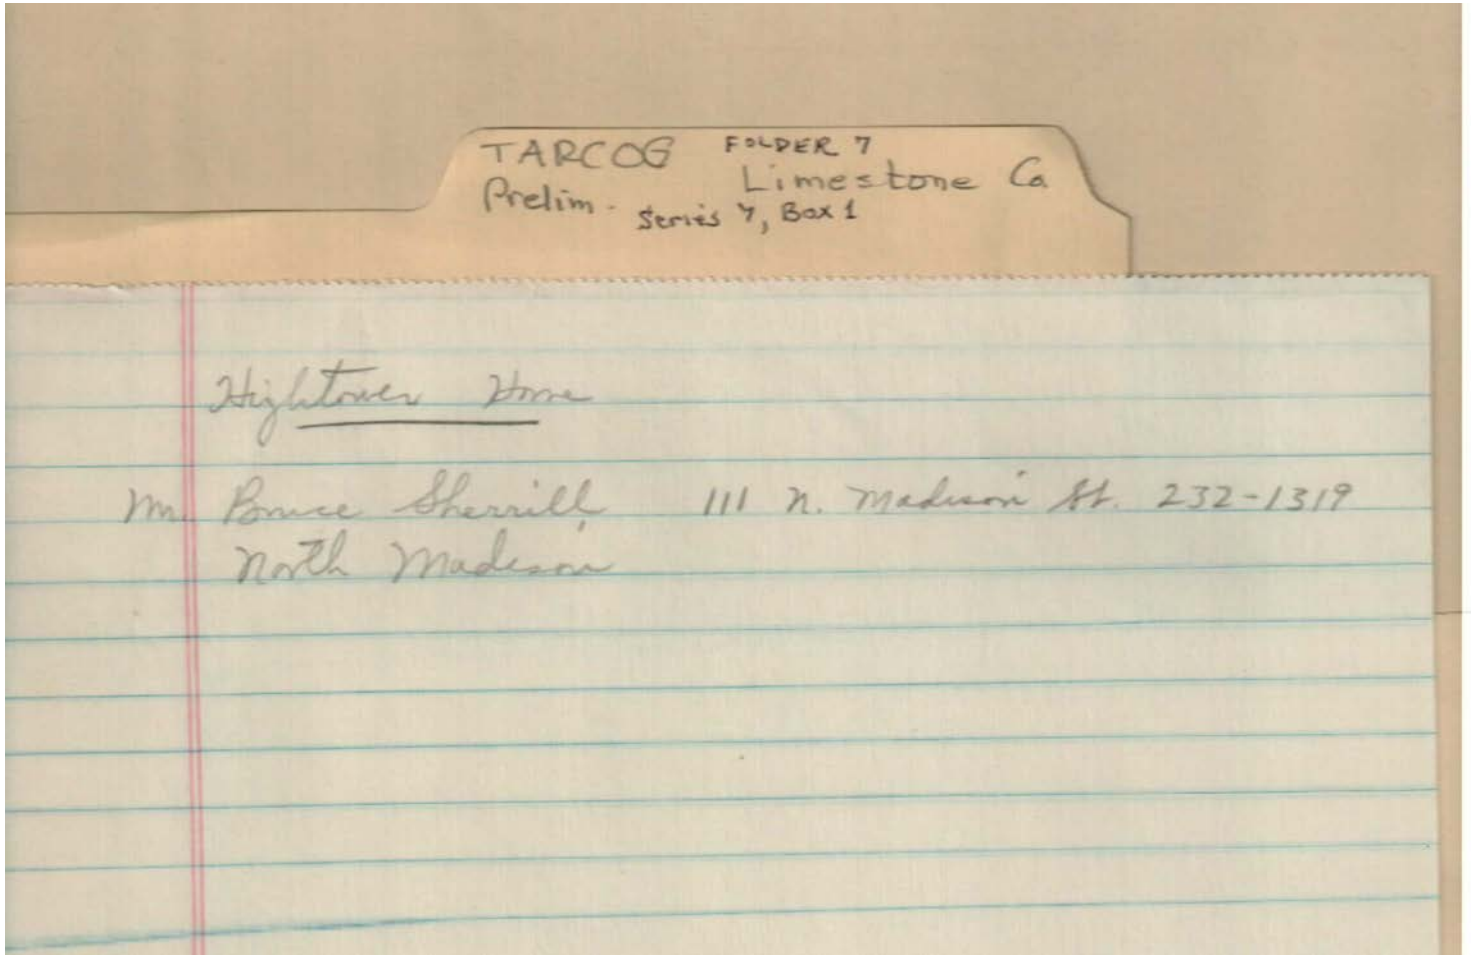 TARCOG FOLDER 7
Prelim. Limestone Co
Series 7, Box 1
Hightower Home
Mr. Bruce Sherrill, 111 N. Madison St. 232-1319
North Madison